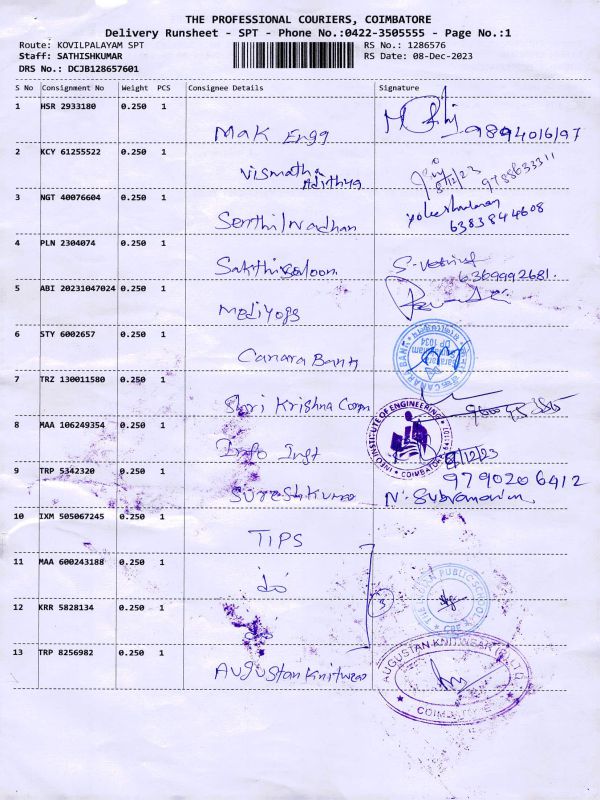 THE PROFESSIONAL COURIERS, COIMBATORE
Delivery Runsheet - SPT - Phone No.:0422-3505555 - Page No.:1
Route: KOVILPALAYAM SPT
RS No.: 1286576
Staff: SATHISHKUMAR
RS Date: 08-Dec-2023
DRS No.: DCJB128657601
S No Consignment No Weight PCS Consignee Details Signature
1 HSR 2933180 0.250 1
Mak Engg 9894016197
2 KCY 61255522 0.250 1
Vismatha Adithya 8/12/23 9788633311
3 NGT 40076604 0.250 1
Senthilvadhan 6383844608
4 PLN 2304074 0.250 1
Sakthi Saloon 6369992681.
5 ABI 20231047024 0.250 1
Mediyogs
6 STY 6002657 0.250 1
Canara Bank CANARA BANK DP 1034
7 TRZ 130011580 0.250 1
Shri Krishna Corpn
8 MAA 106249354 0.250 1
Info Inst INFO INSTITUTE OF ENGINEERING COIMBATORE /12/23
9 TRP 5342320 0.250 1
9790206412
Sureshkumar N. Subramaniam
10 IXM 505067245 0.250 1
TIPS
11 MAA 600243188 0.250 1
do THE INDIAN PUBLIC SCHOOL CBE
12 KRR 5828134 0.250 1
3
13 TRP 8256982 0.250 1
Augustan Knitwear AUGUSTAN KNITWEAR (P) LTD COIMBATORE